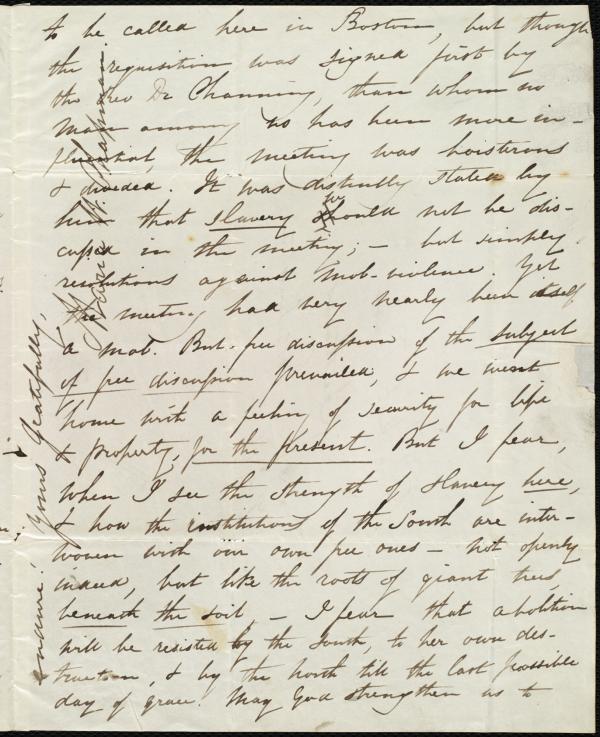 to be called here in Boston, but though
the requisition was signed first by
the Rev Dr Channing, than whom no
man among us has been more in-
fluential, the meeting was boisterous
& divided. It was distinctly stated by
him that slavery would not be dis-
cussed in the meeting; — but simply
resolutions against mob-violence. Yet
the meeting had very nearly been itself
a mob. But free discussion of the subject
of free discussion prevailed, & we went
home with a feeling of security for life
& property, for the present. But I fear,
when I see the strength of slavery here,
& how the institutions of the South are inter-
woven with our own free ones — not openly
indeed, but like the roots of giant trees
beneath the soil, — I fear that abolition
will be resisted by the South, to her own des-
truction, & by the north till the last possible
day of grace. May God strengthen us to
Yours gratefully,
Maria W. Chapman